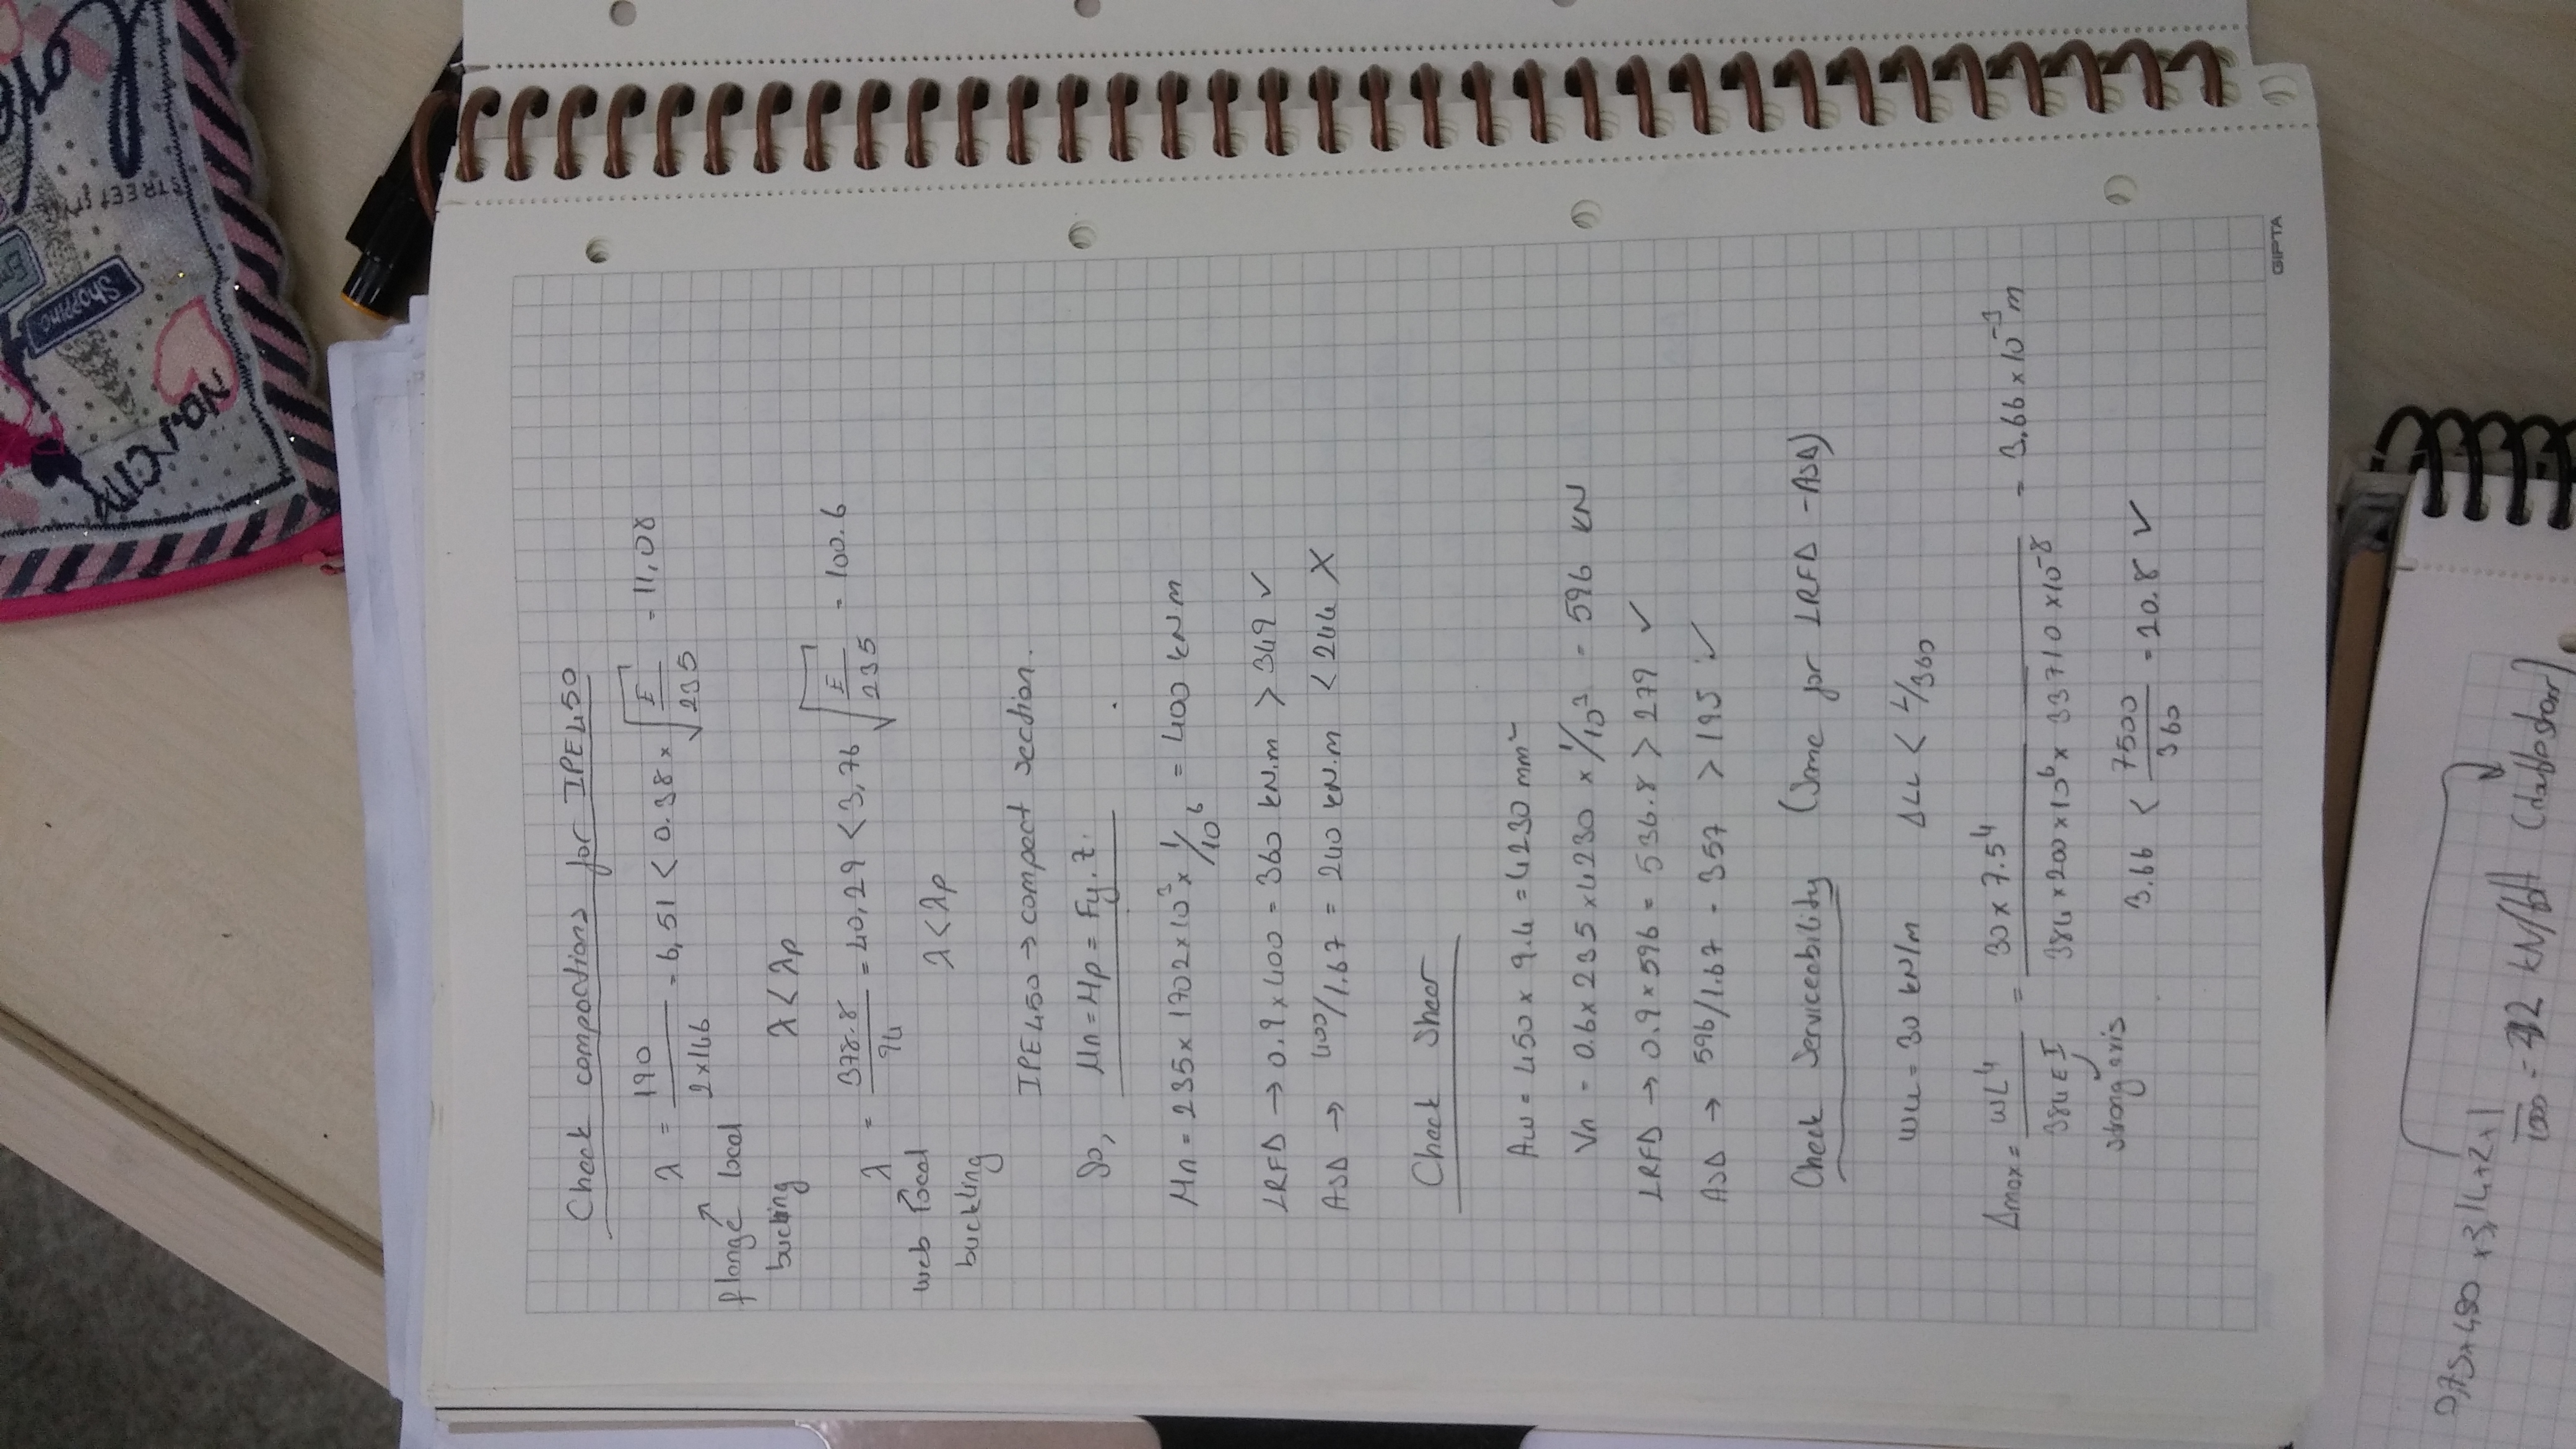 Shopping
NO.1 CITY
STREET
Check compactions for IPE450
λ = 190 / 2x146 = 6,51 < 0.38 x √(E/235) = 11,08
flange local
buckling
λ < λp
λ = 378.8 / 94 = 40,29 < 3,76 √(E/235) = 100.6
web local
buckling
λ < λp
IPE450 → compact section.
So, Mn = Mp = Fy . Z.
Mn = 235 x 1702 x 10³ x 1/10⁶ = 400 kN m
LRFD → 0.9 x 400 = 360 kN.m > 349 ✓
ASD → 400/1.67 = 240 kN.m < 244 X
Check Shear
Aw = 450 x 9.4 = 4230 mm²
Vn = 0.6 x 235 x 4230 x 1/10³ = 596 kN
LRFD → 0.9 x 596 = 536.8 > 279 ✓
ASD → 596/1.67 = 357 > 195 ✓
Check Serviceability (Same for LRFD - ASD)
wLL = 30 kN/m ΔLL < L/360
Δmax = wL⁴ / 384 E I = 30 x 7.5⁴ / 384 x 200 x 10⁶ x 33710 x 10⁻⁸ = 3.66 x 10⁻³ m
strong axis
3.66 < 7500 / 360 = 20.8 ✓
GIPTA
0,75 x 480 x 3,14 x 2 x 1 / 1000 = kN/bolt (double shear)